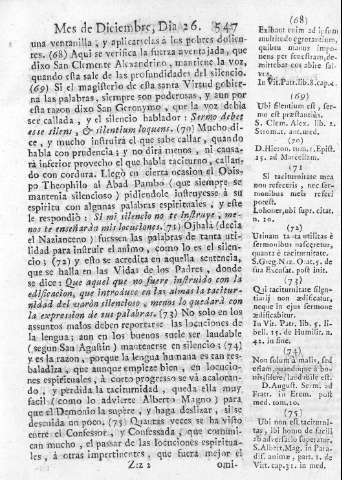 Mes de Diciembre, Dia 26. 547
una ventanilla, y aplicarselas à los pobres dolien-
tes. (68) Aqui se verifica la fuerza aventajada, que
dixo San Clemente Alexandrino, mantiene la voz,
quando esta sale de las profundidades del silencio.
(69) Si el magisterio de esta Santa Virtud gobier-
na las palabras, siempre son poderosas, y aun por
esta razon dixo San Geronymo, que la voz debia
ser callada, y el silencio hablador: Sermo debet
esse silens, & silentium loquens. (70) Mucho di-
ce, y mucho instruirà el que sabe callar, quando
habla con prudencia; y no dirà menos, ni causa-
rà inferior provecho el que habla taciturno, callan-
do con cordura. Llegò en cierta ocasion el Obis-
po Theophilo al Abad Pambo (que siempre se
mantenia silencioso) pidiendole instruyesse à su
espiritu con algunas palabras espirituales, y este
le respondiò: Si mi silencio no te instruye, me-
nos te enseñarán mis locuciones. (71) Ojhalà (decia
el Nazianceno) fuessen las palabras de tanta uti-
lidad para instruir el animo, como lo es el silen-
cio; (72) y esto se acredita en aquella sentencia,
que se halla en las Vidas de los Padres, donde
se dice: Que aquel que no fuere instruido con la
edificacion, que introduce en las almas la tacitur-
nidad del varon silencioso, menos lo quedarà con
la expresion de sus palabras. (73) No solo en los
assuntos malos deben reportarse las locuciones de
la lengua; aun en los buenos suele ser laudable
(segun San Agustin) mantenerse en silencio; (74)
y es la razon, porque la lengua humana es tan res-
baladiza, que aunque empiece bien, en locucio-
nes espirituales, à corto progresso se và acaloran-
do, y perdida la taciturnidad, queda ella muy
facil (como lo advierte Alberto Magno) para
que el Demonio la supere, y haga deslizar, si se
descuida un poco. (75) Quantas veces se ha visto
entre el Confessor, y Confessada, que comuni-
can mucho, el passar de las locuciones espiritua-
les, à otras impertinentes, que fuera mejor el
Zzz 2 omi-
(68)
In Vit. Patr. lib. 8. cap. 4.
(69)
Ubi silentium est, ser-
mo est præstantiùs.
S. Clem. Alex. lib. 2.
Stromat. ant. med.
(70)
D. Hieron. tom. 1. Epist.
15. ad Marcellam.
71
Si taciturnitate mea
non refeceris, nec ser-
monibus meis refeci
posset.
Lohoner, ubi supr. citat.
n. 20.
(72)
Utinam tanta utilitas è
sermonibus nasceretur,
quanta è taciturnitate.
(73)
Qui taciturnitate silen-
tiarij non ædificatur,
neque in ejus sermone
ædificabitur.
In Vit. Patr. lib. 5. li-
bell. 15. de Humilit. n.
42. in fine.
(74)
Non solùm à malis, sed
etiam quandoque à bo-
nis silere, laudabile est.
D. August. Serm. ad
Fratr. in Erem. post
med. tom. 10.
(75)
Ubi non est taciturni-
tas, ibi homo de facili
ab adversario superatur.
S. Albert. Mag. in Para-
dis. animæ, part. 1. de
Virt. cap. 31. in med.